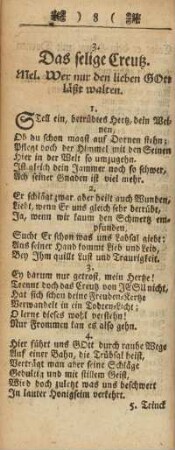 ) 8 (
3.
Das selige Creutz.
Mel. Wer nur den lieben GOtt
läßt walten.
1.
STell ein, betrübtes Hertz, dein Wei-
nen,
Ob du schon magst auf Dornen stehn;
Pflegt doch der Himmel mit den Seinen
Hier in der Welt so umzugehn.
Ist gleich dein Jammer noch so schwer,
Ach seiner Gnaden ist viel mehr.
2.
Er schlägt zwar, aber heilt auch Wunden,
Liebt, wenn Er uns gleich sehr betrübt,
Ja, wenn wir kaum den Schwerdt em-
pfunden,
Sucht Er schon was uns Labsal giebt:
Aus seiner Hand kommt Lieb und Leid,
Bey Ihm quillt Lust und Traurigkeit.
3.
Ey darum nur getrost, mein Hertze!
Trennt doch das Creutz von JESU nicht,
Hat sich schon deine Freuden-Kertze
Verwandelt in ein Todten-Licht:
O lerne dieses wohl verstehn!
Nur Frommen kan es also gehn.
4.
Hier führt uns GOtt durch rauhe Wege
Auf einer Bahn, die Trübsal heist,
Verträgt man aber seine Schläge
Gedultig und mit stillem Geist,
Wird doch zuletzt was uns beschwert
In lauter Honigseim verkehrt.
5. Trinck